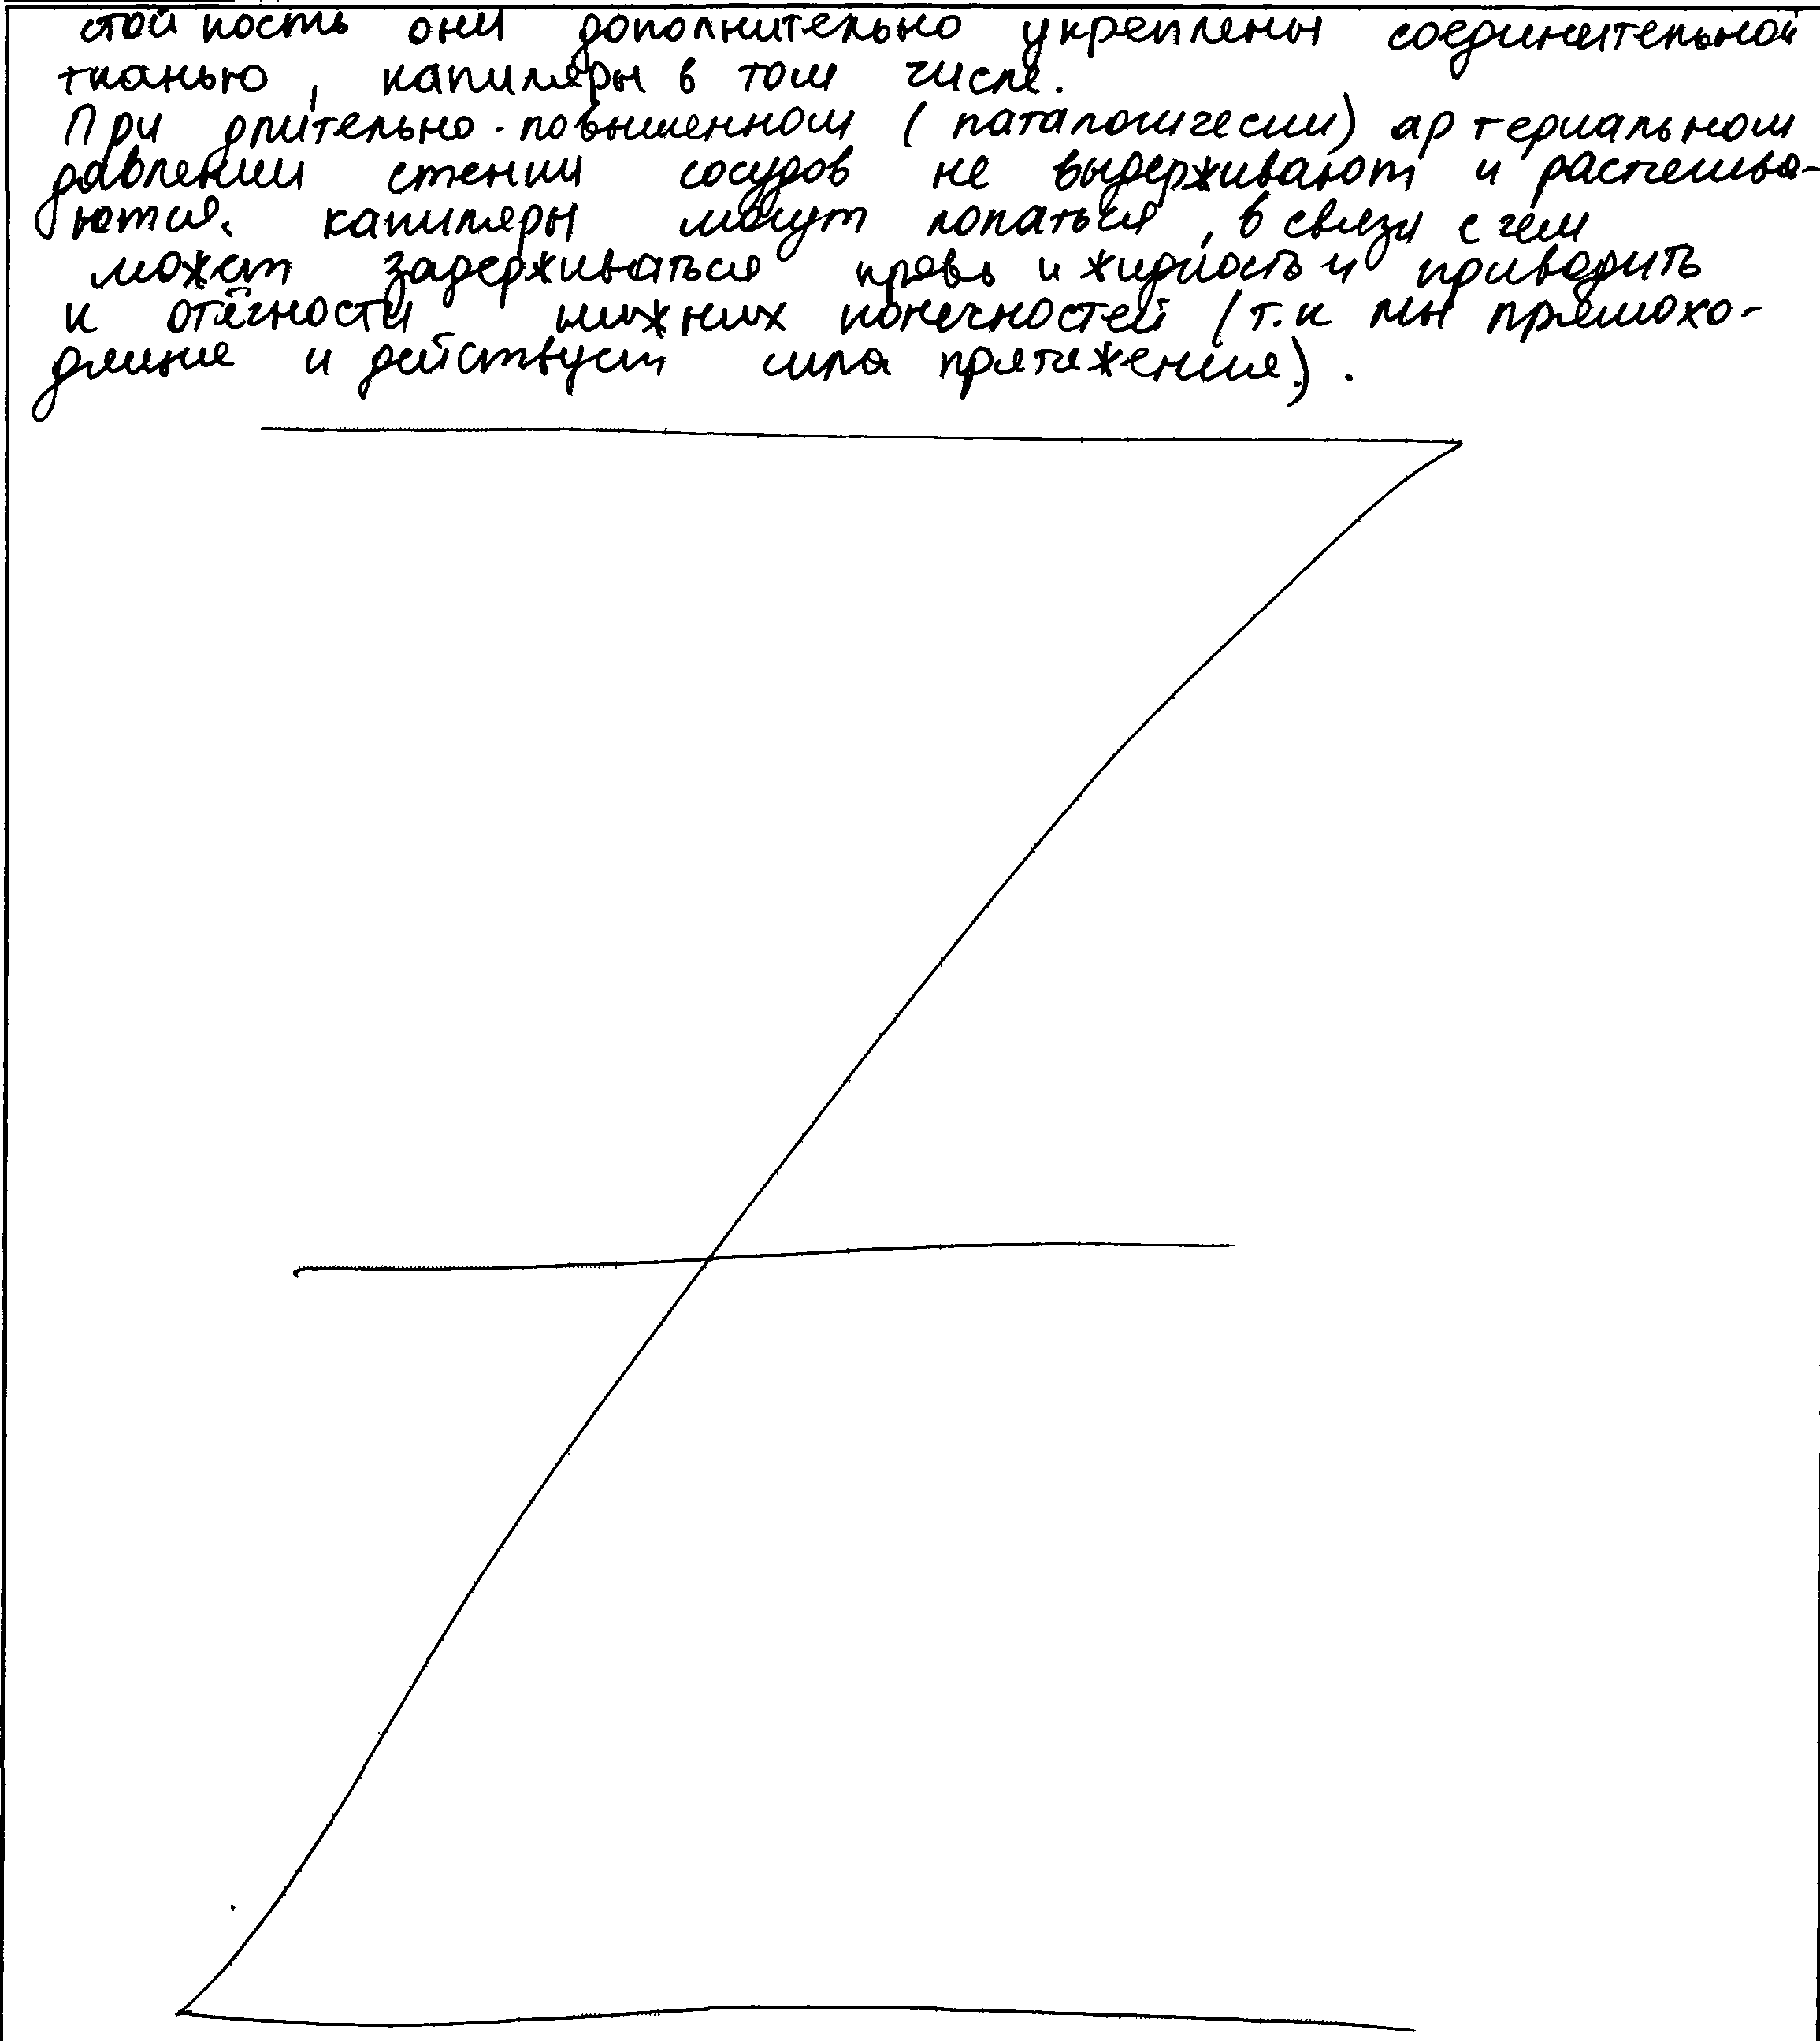 стойкость они дополнительно укреплены соединительной
тканью, капиляры в том числе.
При длительно-повышенном (паталогически) артериальном
давлении стенки сосудов не выдерживают и растягива-
ются. капиляры могут лопаться, в связи с чем
может задерживаться кровь и жидкость и приводить
к отёчности нижних конечностей (т.к мы прямохо-
дящие и действует сила притяжения.).